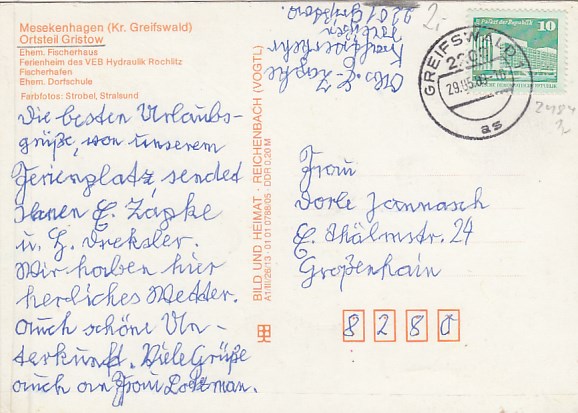 Mesekenhagen (Kr. Greifswald)
Ortsteil Gristow
Ehem. Fischerhaus
Ferienheim des VEB Hydraulik Rochlitz
Fischerhafen
Ehem. Dorfschule
Farbfotos: Strobel, Stralsund
Die besten Urlaubs-
grüße, von unserem
Ferienplatz, sendet
Ihnen E. Zapke
u. H. Dreksler.
Wir haben hier
herliches Wetter.
Auch schöne Un-
terkunft. Viele Grüße
auch an Frau Lotzman.
BILD UND HEIMAT · REICHENBACH (VOGTL)
A1/III/26/13 · 01 01 0788/05 · DDR 0,20 M
E. Zapke
2201 Gristow
2,-
GREIFSWALD 1
2200
29.05.89
as
Palast der Republik
10
DEUTSCHE DEMOKRATISCHE REPUBLIK
2484
Frau
Dorle Jannasch
E. Thälmstr. 24
Großenhain
8280